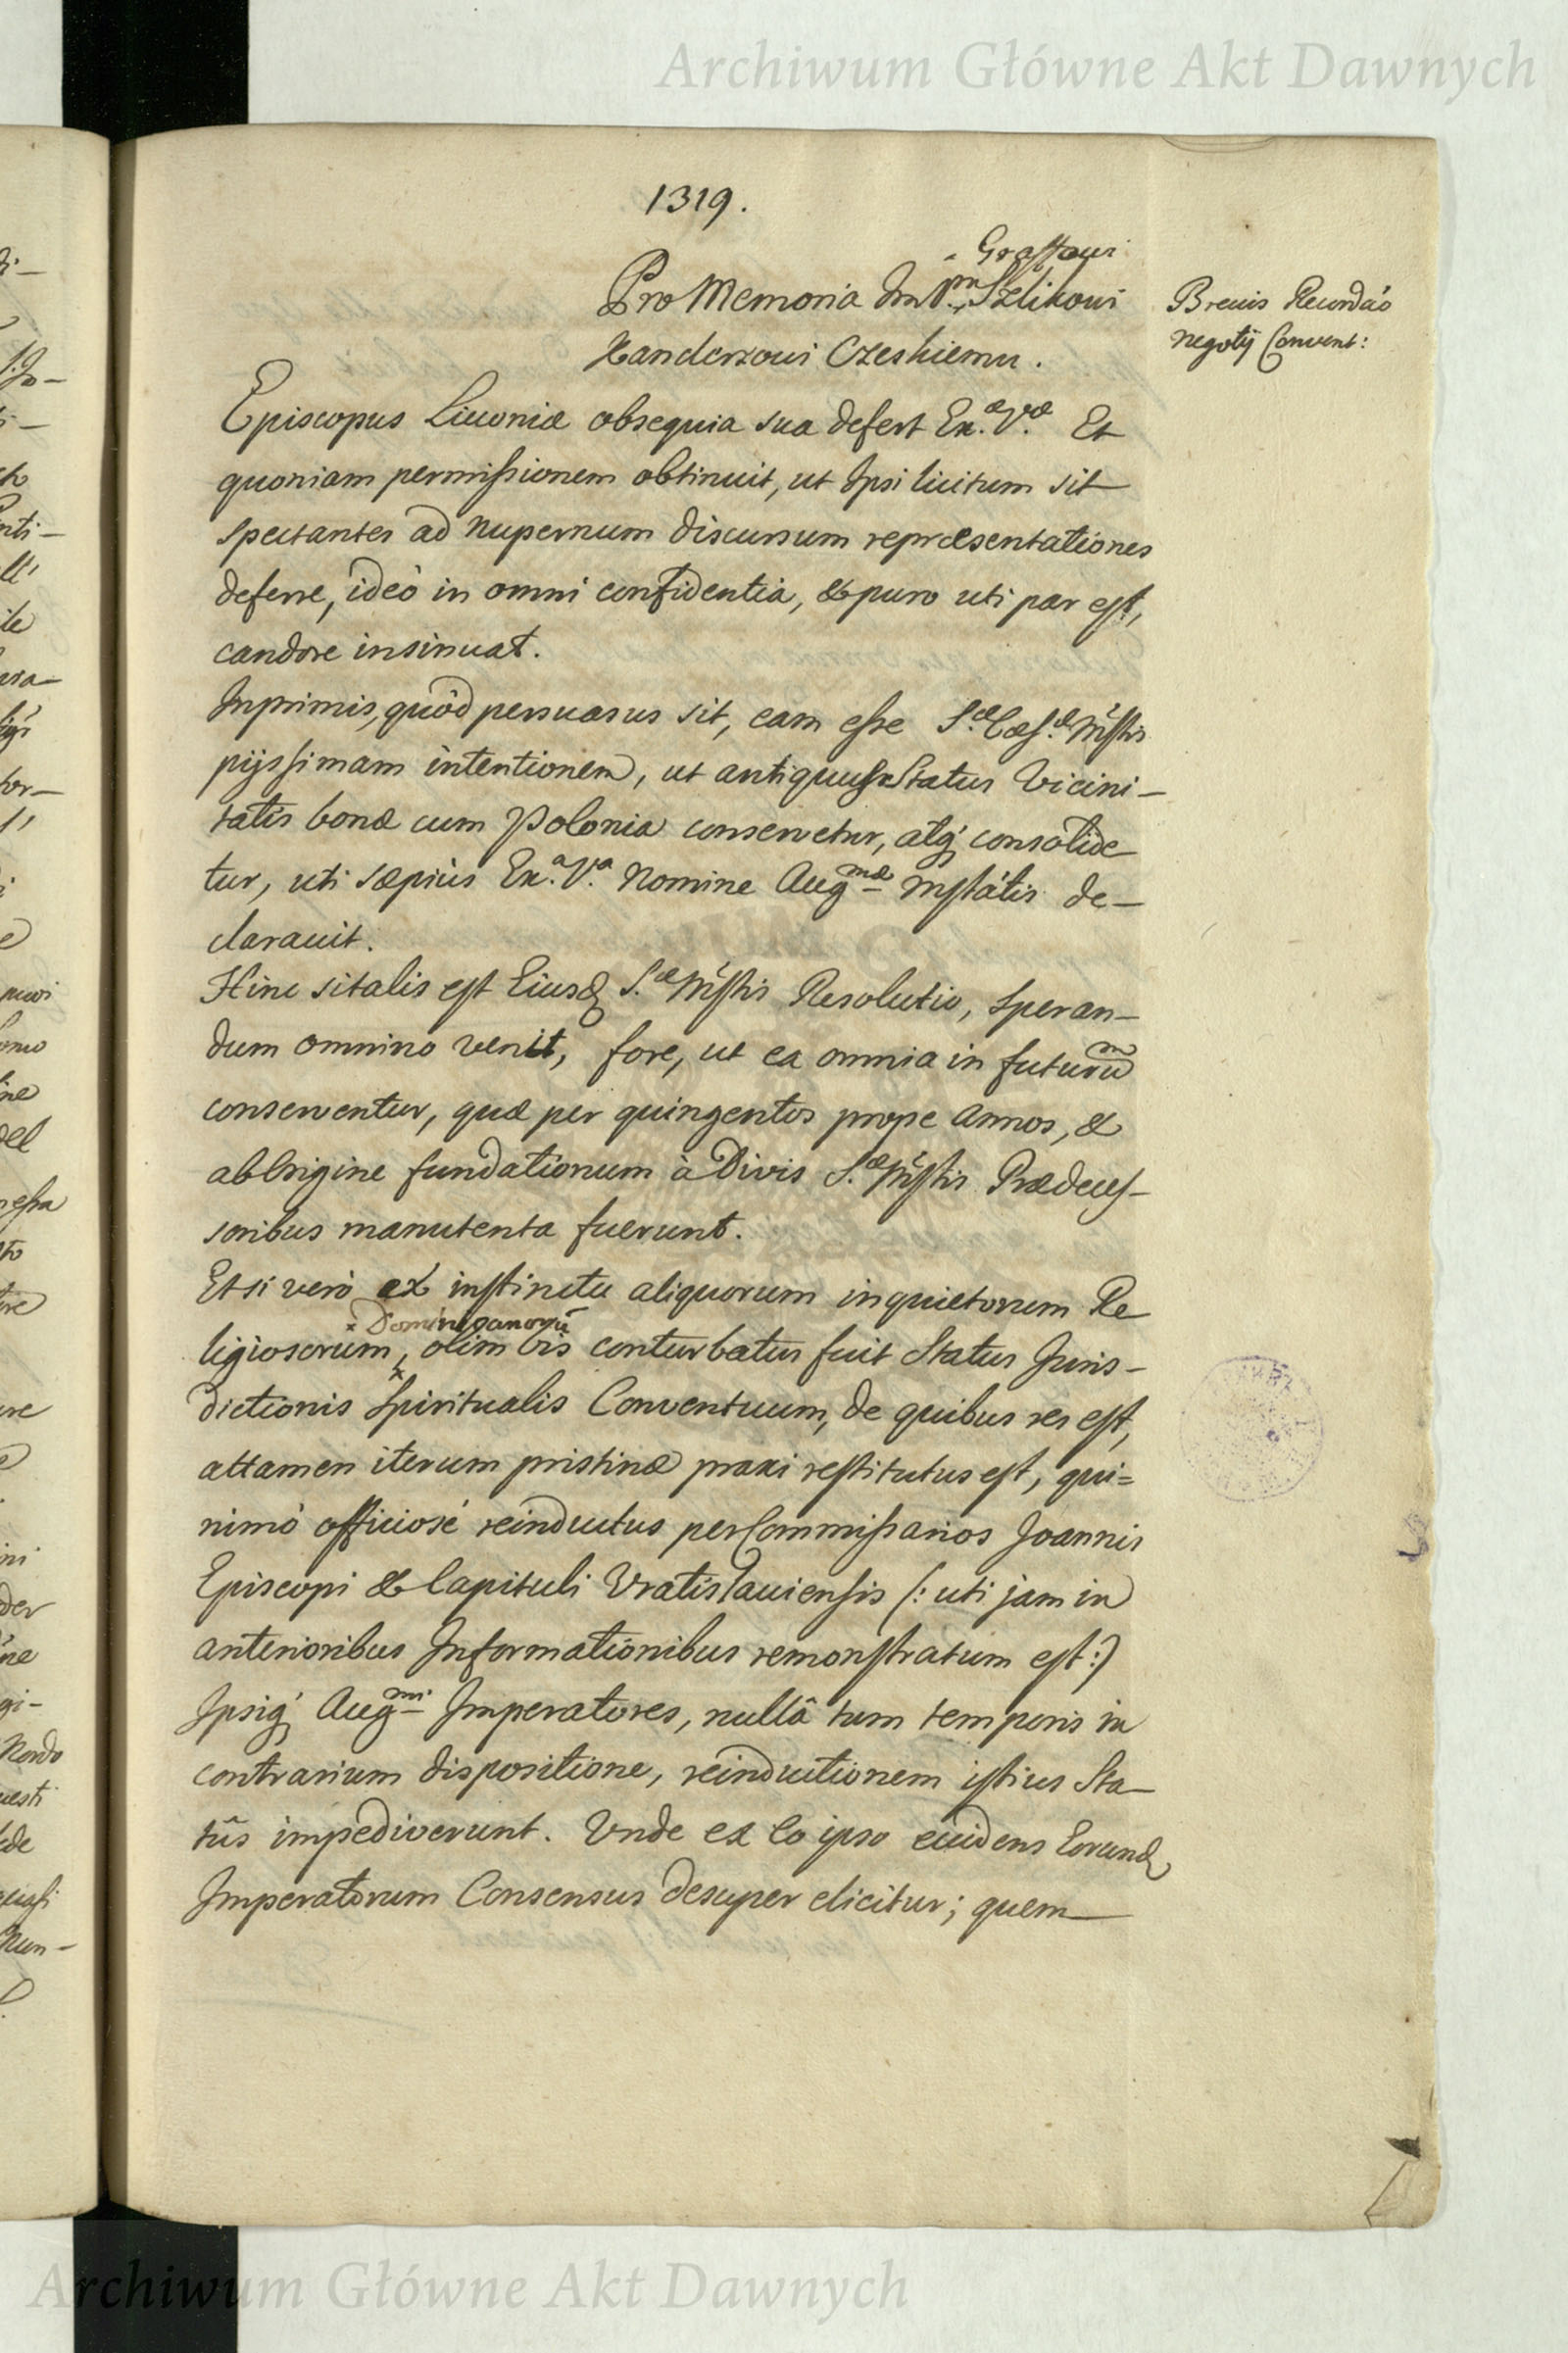 Archiwum Główne Akt Dawnych
1319.
Graffowi
Pro Memoria Im Pnu Szlikowi
Kanclerzowi Czeskiemu.
Brevis Recordao
negotij Convent:
Episcopus Livoniæ obsequia sua defert Ex.æ V.æ Et
quoniam permissionem obtinuit, ut Ipsi licitum sit
spectantes ad nupernum discursum repræsentationes
deferre, ideò in omni confidentia, & puro uti par est,
candore insinuat.
Inprimis, quòd persuasus sit, eam esse S.æ Cæs.æ Mstis
pijssimam intentionem, ut antiquus Status Vicini–
tatis bonæ cum Polonia conservetur, atq; consolide
tur, uti sæpius Ex.a V.a Nomine Augmæ Mstátis de–
claravit.
Hinc si talis est Eiusd S.æ Mstis Resolutio, speran–
dum omnino venit, fore, ut ea omnia in futurum
conserventur, quæ per quingentos prope annos, &
ab Origine fundationum à Divis S.æ Mstis Prædeces–
soribus manutenta fuerunt.
Etsi verò ex instinctu aliquorum inquietorum Re
× Dominicanorū
ligiosorum, olim bis conturbatus fuit Status Juris–
dictionis Spiritualis Conventuum, de quibus res est,
attamen iterum pristinæ praxi restitutus est, qui=
nimò officiosé reinductus per Commissarios Joannis
Episcopi & Capituli Vratislaviensis (: uti jam in
anterioribus Informationibus remonstratum est:)
Ipsiq; Augmi Imperatores, nullâ tum temporis in
contrarium dispositione, reinductionem istius Sta–
tûs impediverunt. Unde ex Eo ipso evidens Eorund
Imperatorum Consensus desuper elicitur; quem
Archiwum Główne Akt Dawnych